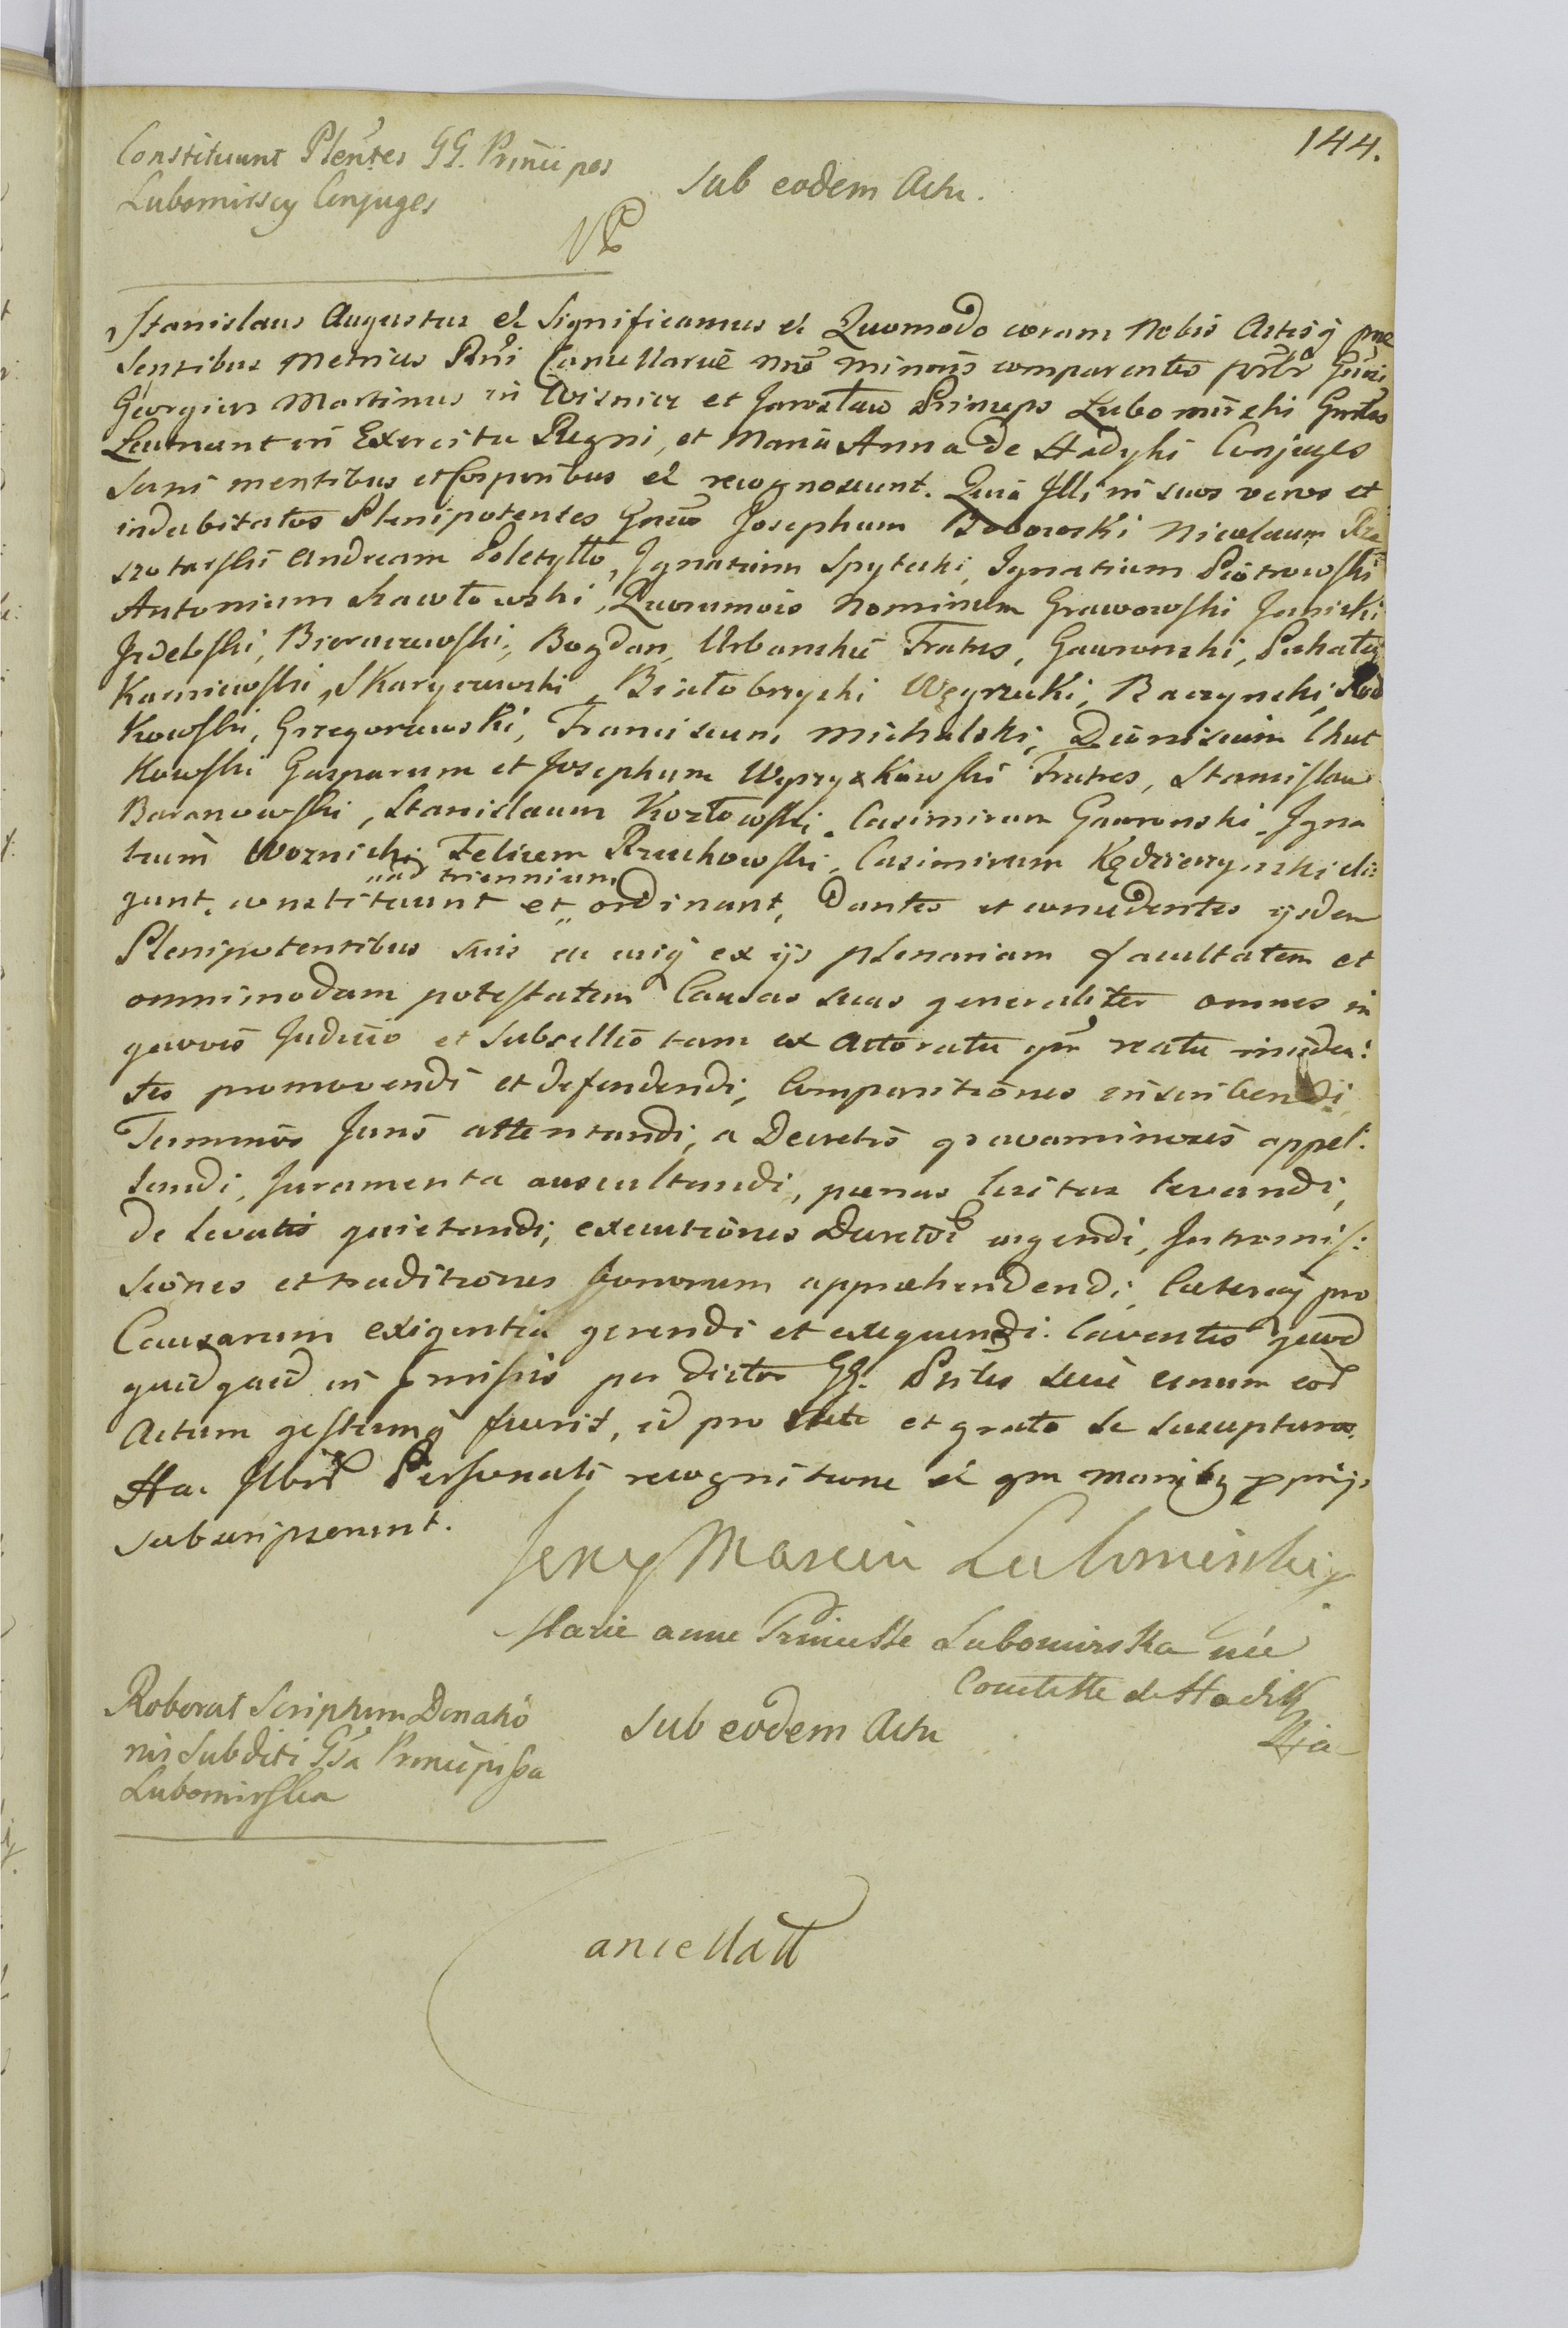 144.
Constituunt Plentes GG. Principes
Lubomirscy Conjuges
Sub eodem Actu.
Stanislaus Augustus et Significamus et Quomodo coram Nobis Actisq prae
sentibus Metrices Rni Cancellariae nrae minoris comparentes psltr Gnsi
Georgius Martinus in Wisnicz et Jarosław Princeps Lubomirski Gnrlis
Leutnant in Exercitu Regni, et Maria Anna de Hadyki Conjuges
Sani mentibus et Corporibus et recognoverunt. Quia Illi in suos veros et
indubitatos Plenipotentes Gnsos Josephum Bobowski Nicolaum Rze
szotarski Andream Poletyllo, Ignatium Spytecki, Ignatium Piotrowski
Antonium Chawłowski, Quorumvis Nominum Grawowski Janicki
Jzdebski, Bieraczewski, Bogdan, Urbanskie Fratres, Gawronski, Puchały
Kamiewski, Skaryszewski, Białobrzyski Węgrzecki, Raczynski, Rod
kowski, Grzegorzewski, Franciscum Michalski, Dionisium Chut
kowski Gasparum et Josephum Wyprzykowski Fratres, Stanislau
Baranowski, Stanislaum Kozłowski, Casimirum Gawronski, Igna
tium Woznicki Felicem Rzuchowski, Casimirum Kędzierzynski eli:
ad triennium
gunt, constituunt et ordinant, Dantes et concedentes ijsdem
Plenipotentibus suis ac cuiq ex ijs plenariam facultatem et
omnimodam potestatem Causas suas generaliter omnes in
quovis Judicio et Subsellio tam ex Actoratu qm reatu inciden:
tes promovendi et defendendi, Comparitiones inscribendi,
Terminos Juris attentandi, a Decretis gravaminosis appel:
landi, Juramenta auscultandi, paenas lucitas levandi,
de levatis quietandi, executiones Decretor urgendi, Intromis:
siones et traditiones bonorum appraehendendi, Caeteraq pro
Causarum exigentia gerendi et exequendi. Caventes quod
quidquid in pmissis per dictos GG. Plntes seu unum eor
Actum gestumq fuerit, id pro rato et grato se suscepturos.
Hac Illor Personali recognitione et qm manibq pprijs
subscripserunt.
Jerzy Marcin Lubomirski
Marie anne Princesse Lubomirska née
Comtesse de Hadik
Roborat Scriptum Donatio
nis Subditi Gsa Principissa
Lubomirska
Sub eodem Actu
Cancellatt